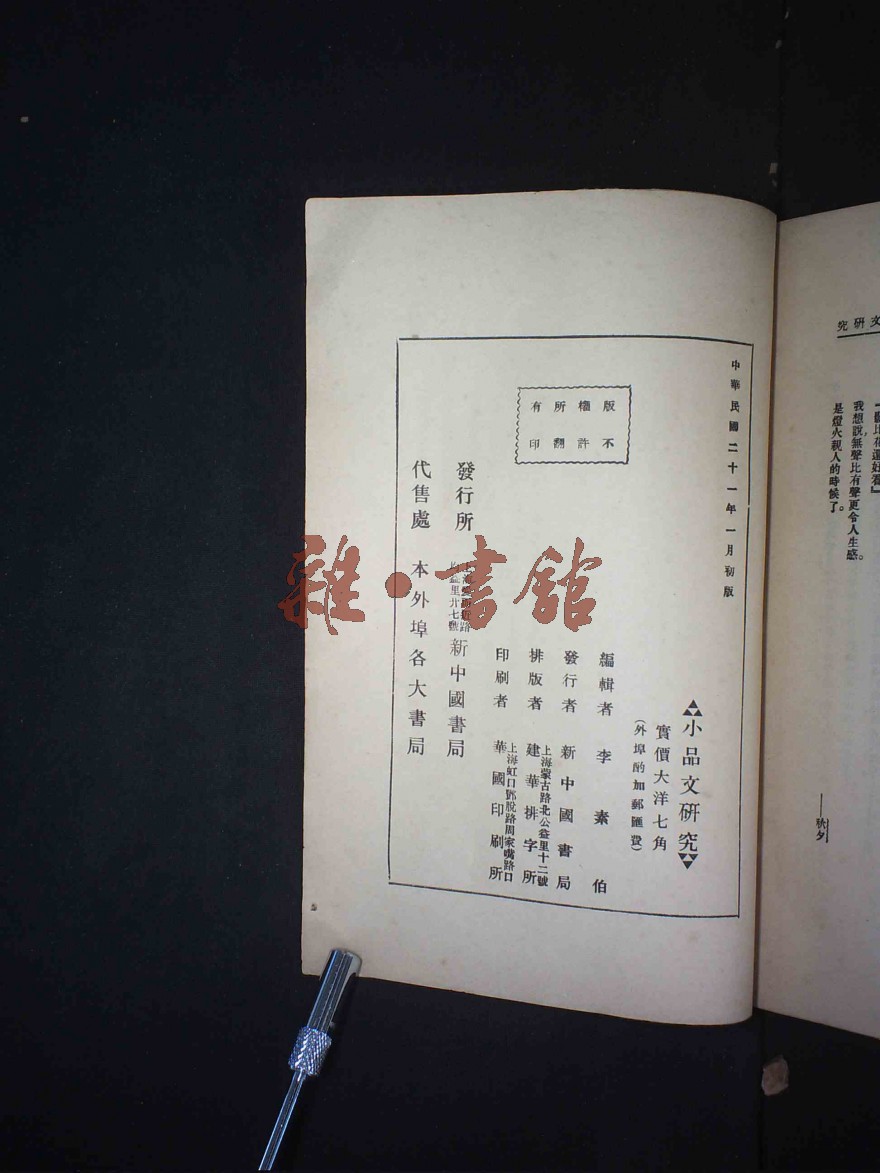 文研究
我想說無聲比有聲更令人生感。
是燈火親人的時候了。
——秋夕
中華民國二十一年一月初版
小品文研究
實價大洋七角
(外埠酌加郵匯費)
版權所有
不許翻印
編輯者 李素伯
發行者 新中國書局
上海蒙古路北公益里十二號
排版者 建華排字所
上海虹口鄧脫路周家嘴路口
印刷者 華國印刷所
發行所
益里廿七號
新中國書局
代售處 本外埠各大書局
雜·書館